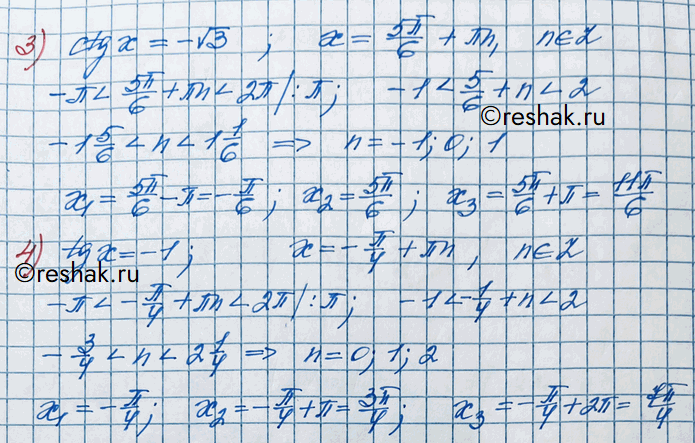 3) ctg x = -√3 ; x = 5π/6 + πn, n∈Z
-π < 5π/6 + πn < 2π |:π ; -1 < 5/6 + n < 2
©reshak.ru
-1 5/6 < n < 1 1/6 => n = -1; 0; 1
x₁ = 5π/6 - π = -π/6 ; x₂ = 5π/6 ; x₃ = 5π/6 + π = 11π/6
4) tg x = -1 ; x = -π/4 + πn, n∈Z
©reshak.ru
-π < -π/4 + πn < 2π |:π ; -1 < -1/4 + n < 2
-3/4 < n < 2 1/4 => n = 0; 1; 2
©reshak.ru
x₁ = -π/4 ; x₂ = -π/4 + π = 3π/4 ; x₃ = -π/4 + 2π = 7π/4